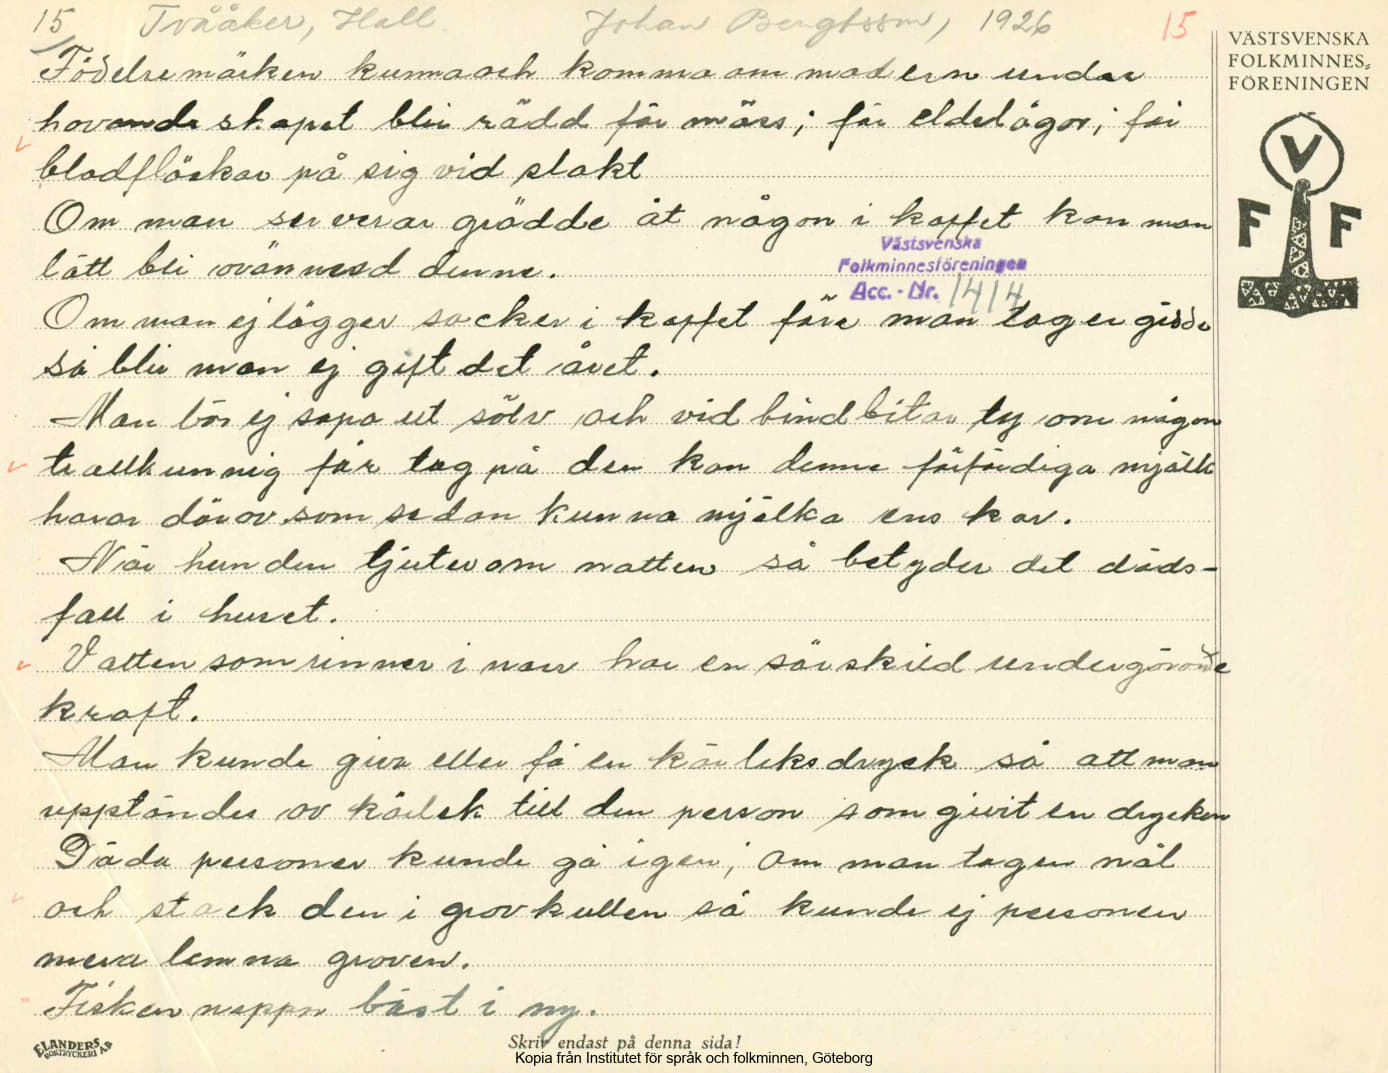 15 Tvååker, Hall Johan Bengtsson, 1926 15
VÄSTSVENSKA
FOLKMINNES-
FÖRENINGEN
V
F F
Födelsemärken kunna och komma om modern under
havandeskapet blir rädd för möss; för eldslågor; får
blodfläckar på sig vid slakt
Om man serverar grädde åt någon i kaffet kan man
lätt bli ovän med denne.
Västsvenska
Folkminnesföreningen
Acc.-Nr. 1414
Om man ej lägger socker i kaffet före man tager grädde
så blir man ej gift det året.
Man bör ej sopa ut sölv och vid bindbitar ty om någon
trollkunnig får tag på den kan denne förfärdiga mjölk
harar därav som sedan kunna mjölka ens kor.
När hunden tjuter om natten så betyder det döds-
fall i huset.
Vatten som rinner i norr har en särskild undergörande
kraft.
Man kunde giva eller få en kärleksdryck så att man
upptändes av kärlek till den person som givit en drycken
Döda personer kunde gå igen; om man tager nål
och stack den i gravkullen så kunde ej personen
mera lemna graven.
Fisken nappa bäst i ny.
ELANDERS
BOKTRYCKERI AB
Skriv endast på denna sida!
Kopia från Institutet för språk och folkminnen, Göteborg